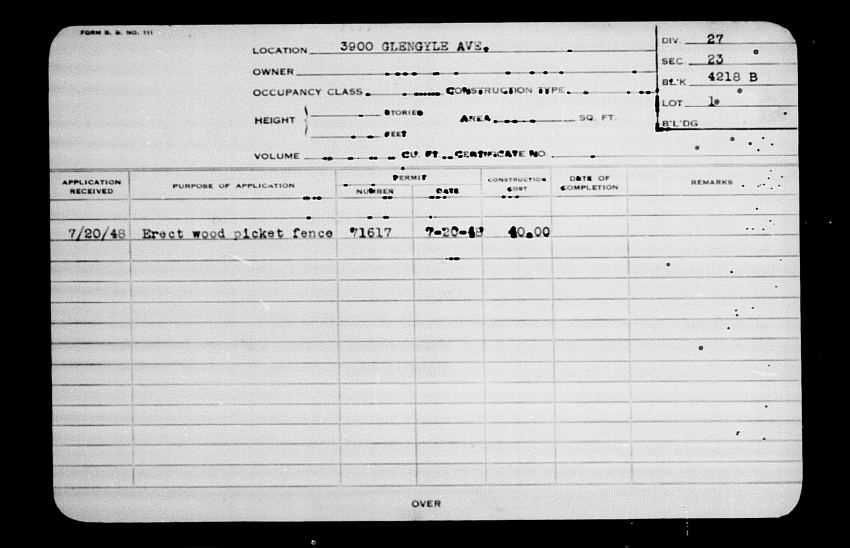 FORM B. B. NO. 111
LOCATION 3900 GLENGYLE AVE.
OWNER
OCCUPANCY CLASS CONSTRUCTION TYPE
HEIGHT STORIES AREA SQ. FT.
FEET
VOLUME CU. FT. CERTIFICATE NO.
DIV. 27
SEC. 23
BL'K 4218 B
LOT 1
B'L'DG
APPLICATION RECEIVED PURPOSE OF APPLICATION PERMIT NUMBER DATE CONSTRUCTION COST DATE OF COMPLETION REMARKS
7/20/48 Erect wood picket fence 71617 7-20-48 40.00
OVER